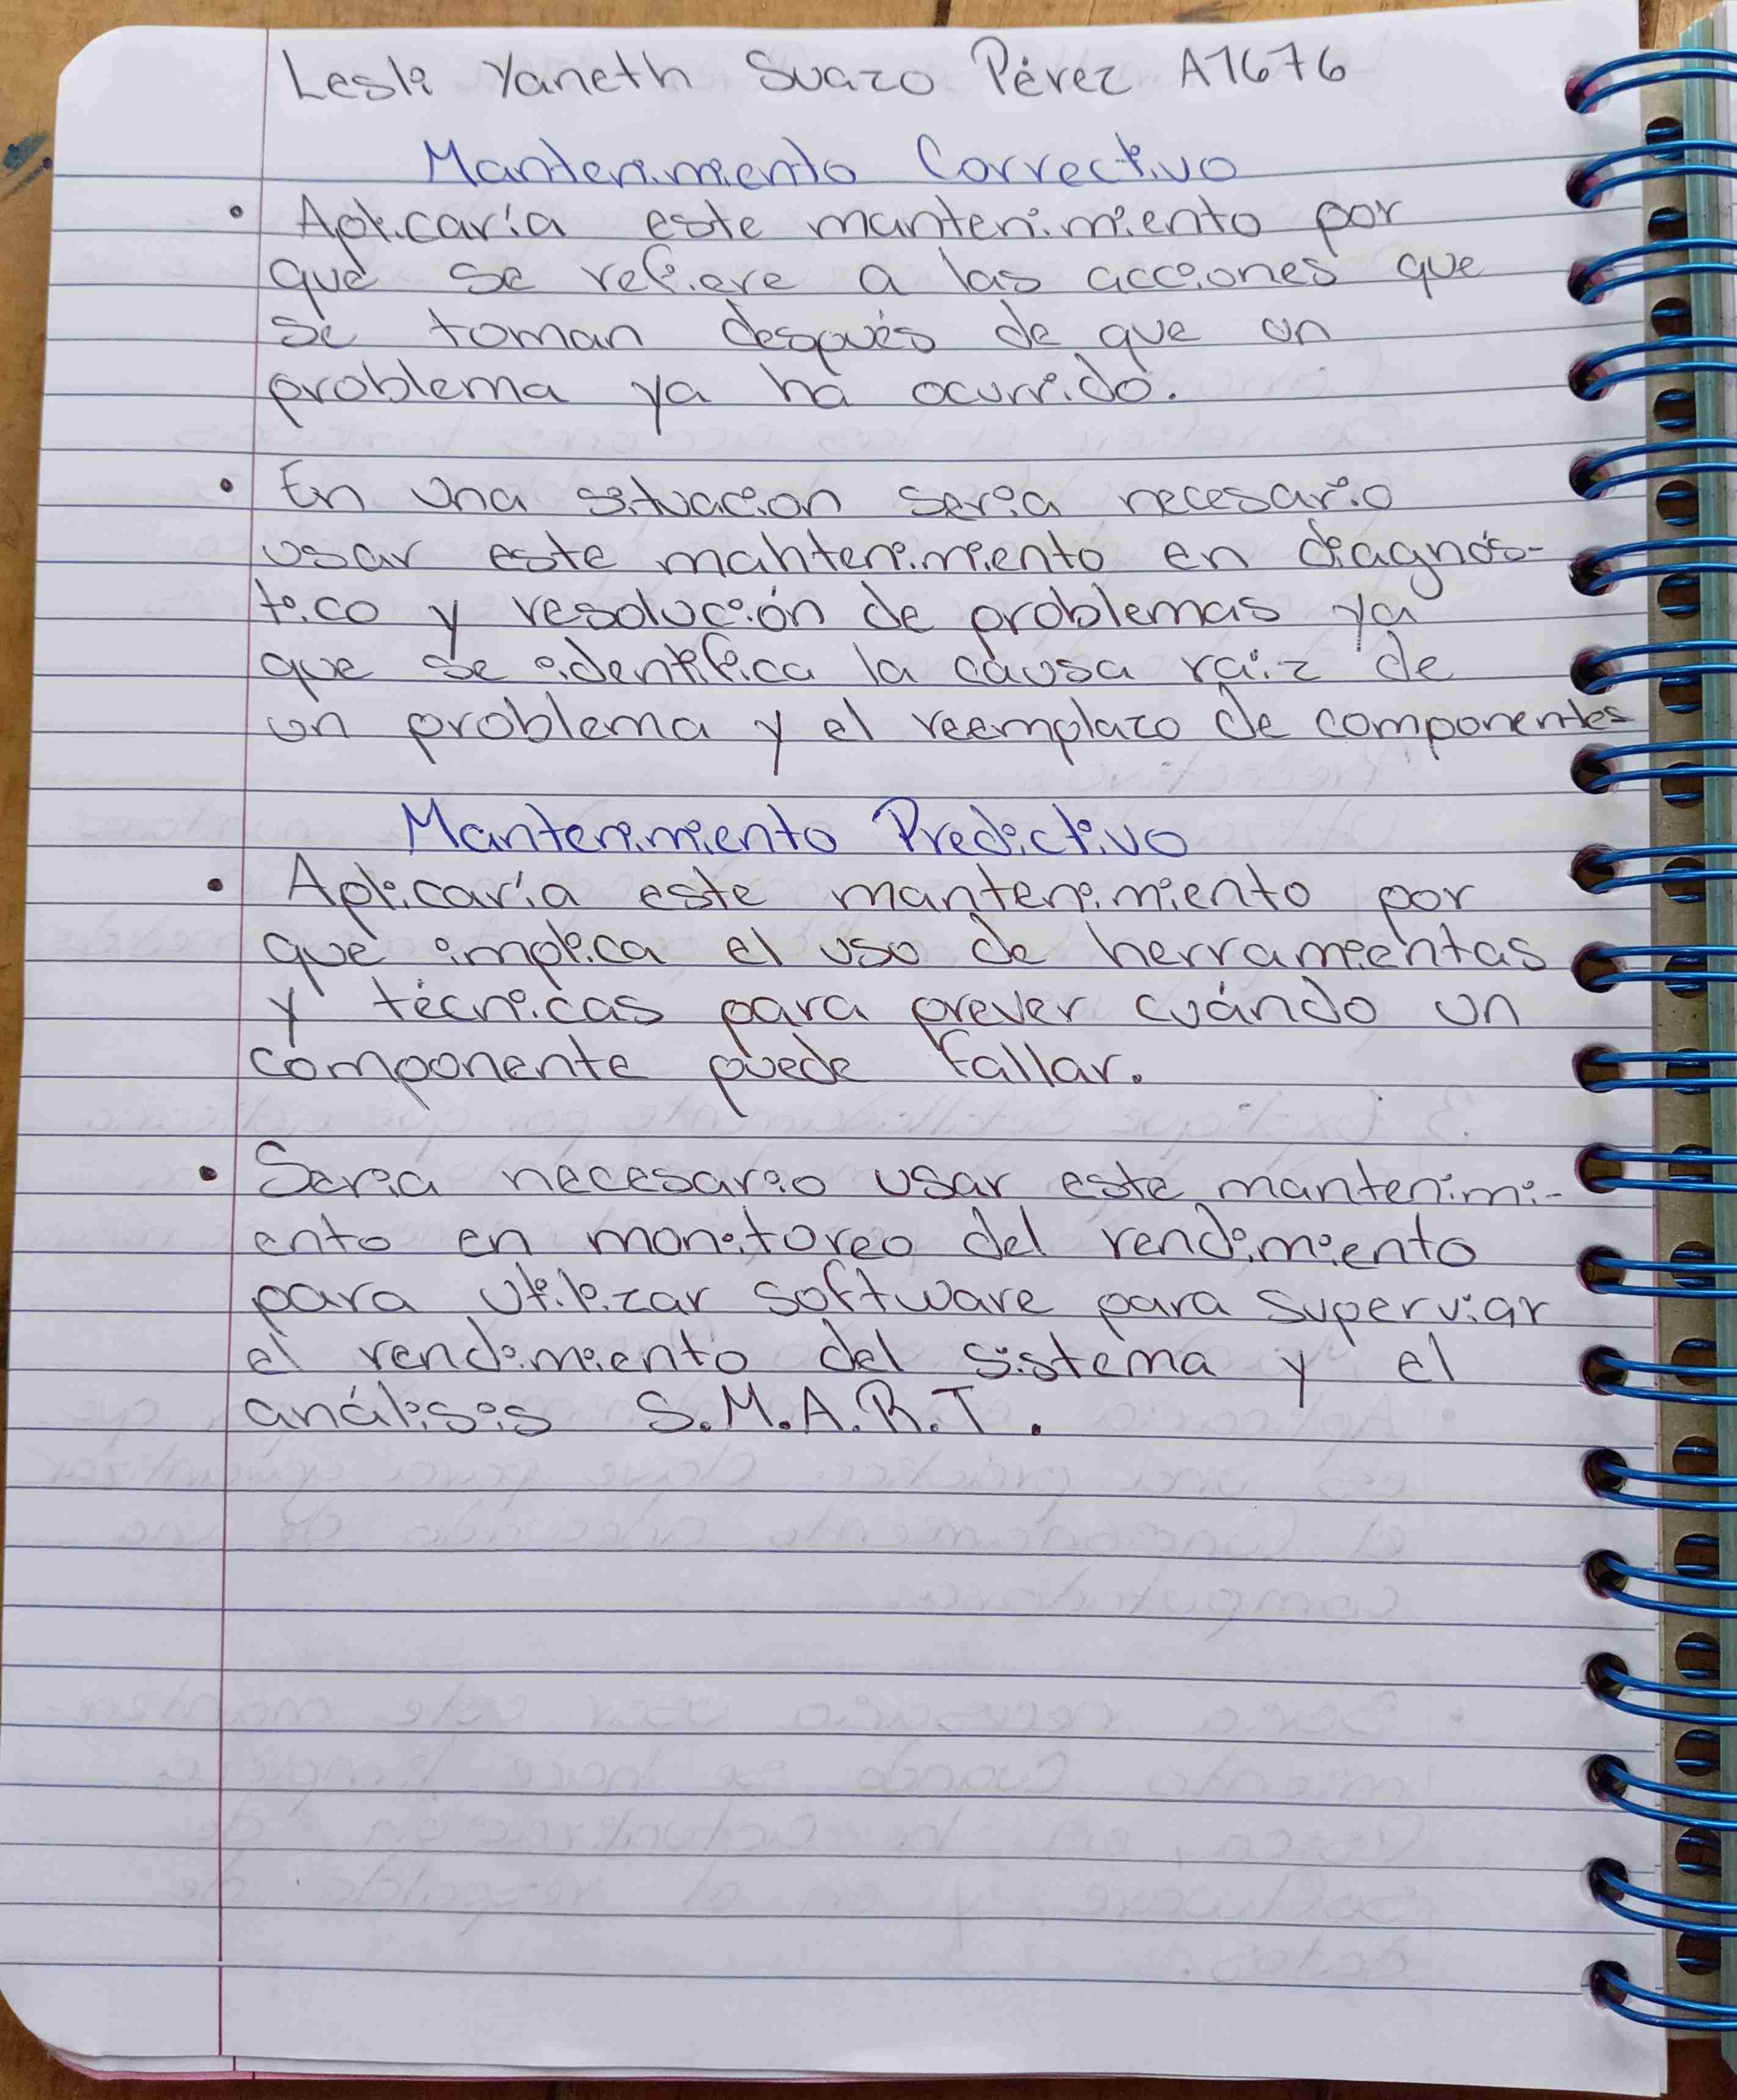 Lesli Yaneth Suazo Pérez A1676
Mantenimiento Correctivo
• Aplicaría este mantenimiento por
que se refiere a las acciones que
se toman después de que un
problema ya ha ocurrido.
• En una situacion seria necesario
usar este mahtenimiento en diagnós-
tico y resolución de problemas ya
que se identifica la causa raiz de
un problema y el reemplazo de componentes
Mantenimiento Predictivo
• Aplicaría este mantenimiento por
que implica el uso de herramientas
y técnicas para prever cuándo un
componente puede fallar.
• Seria necesario usar este mantenimi-
ento en monitoreo del rendimiento
para utilizar software para superviar
el rendimiento del sistema y el
análisis S.M.A.R.T.